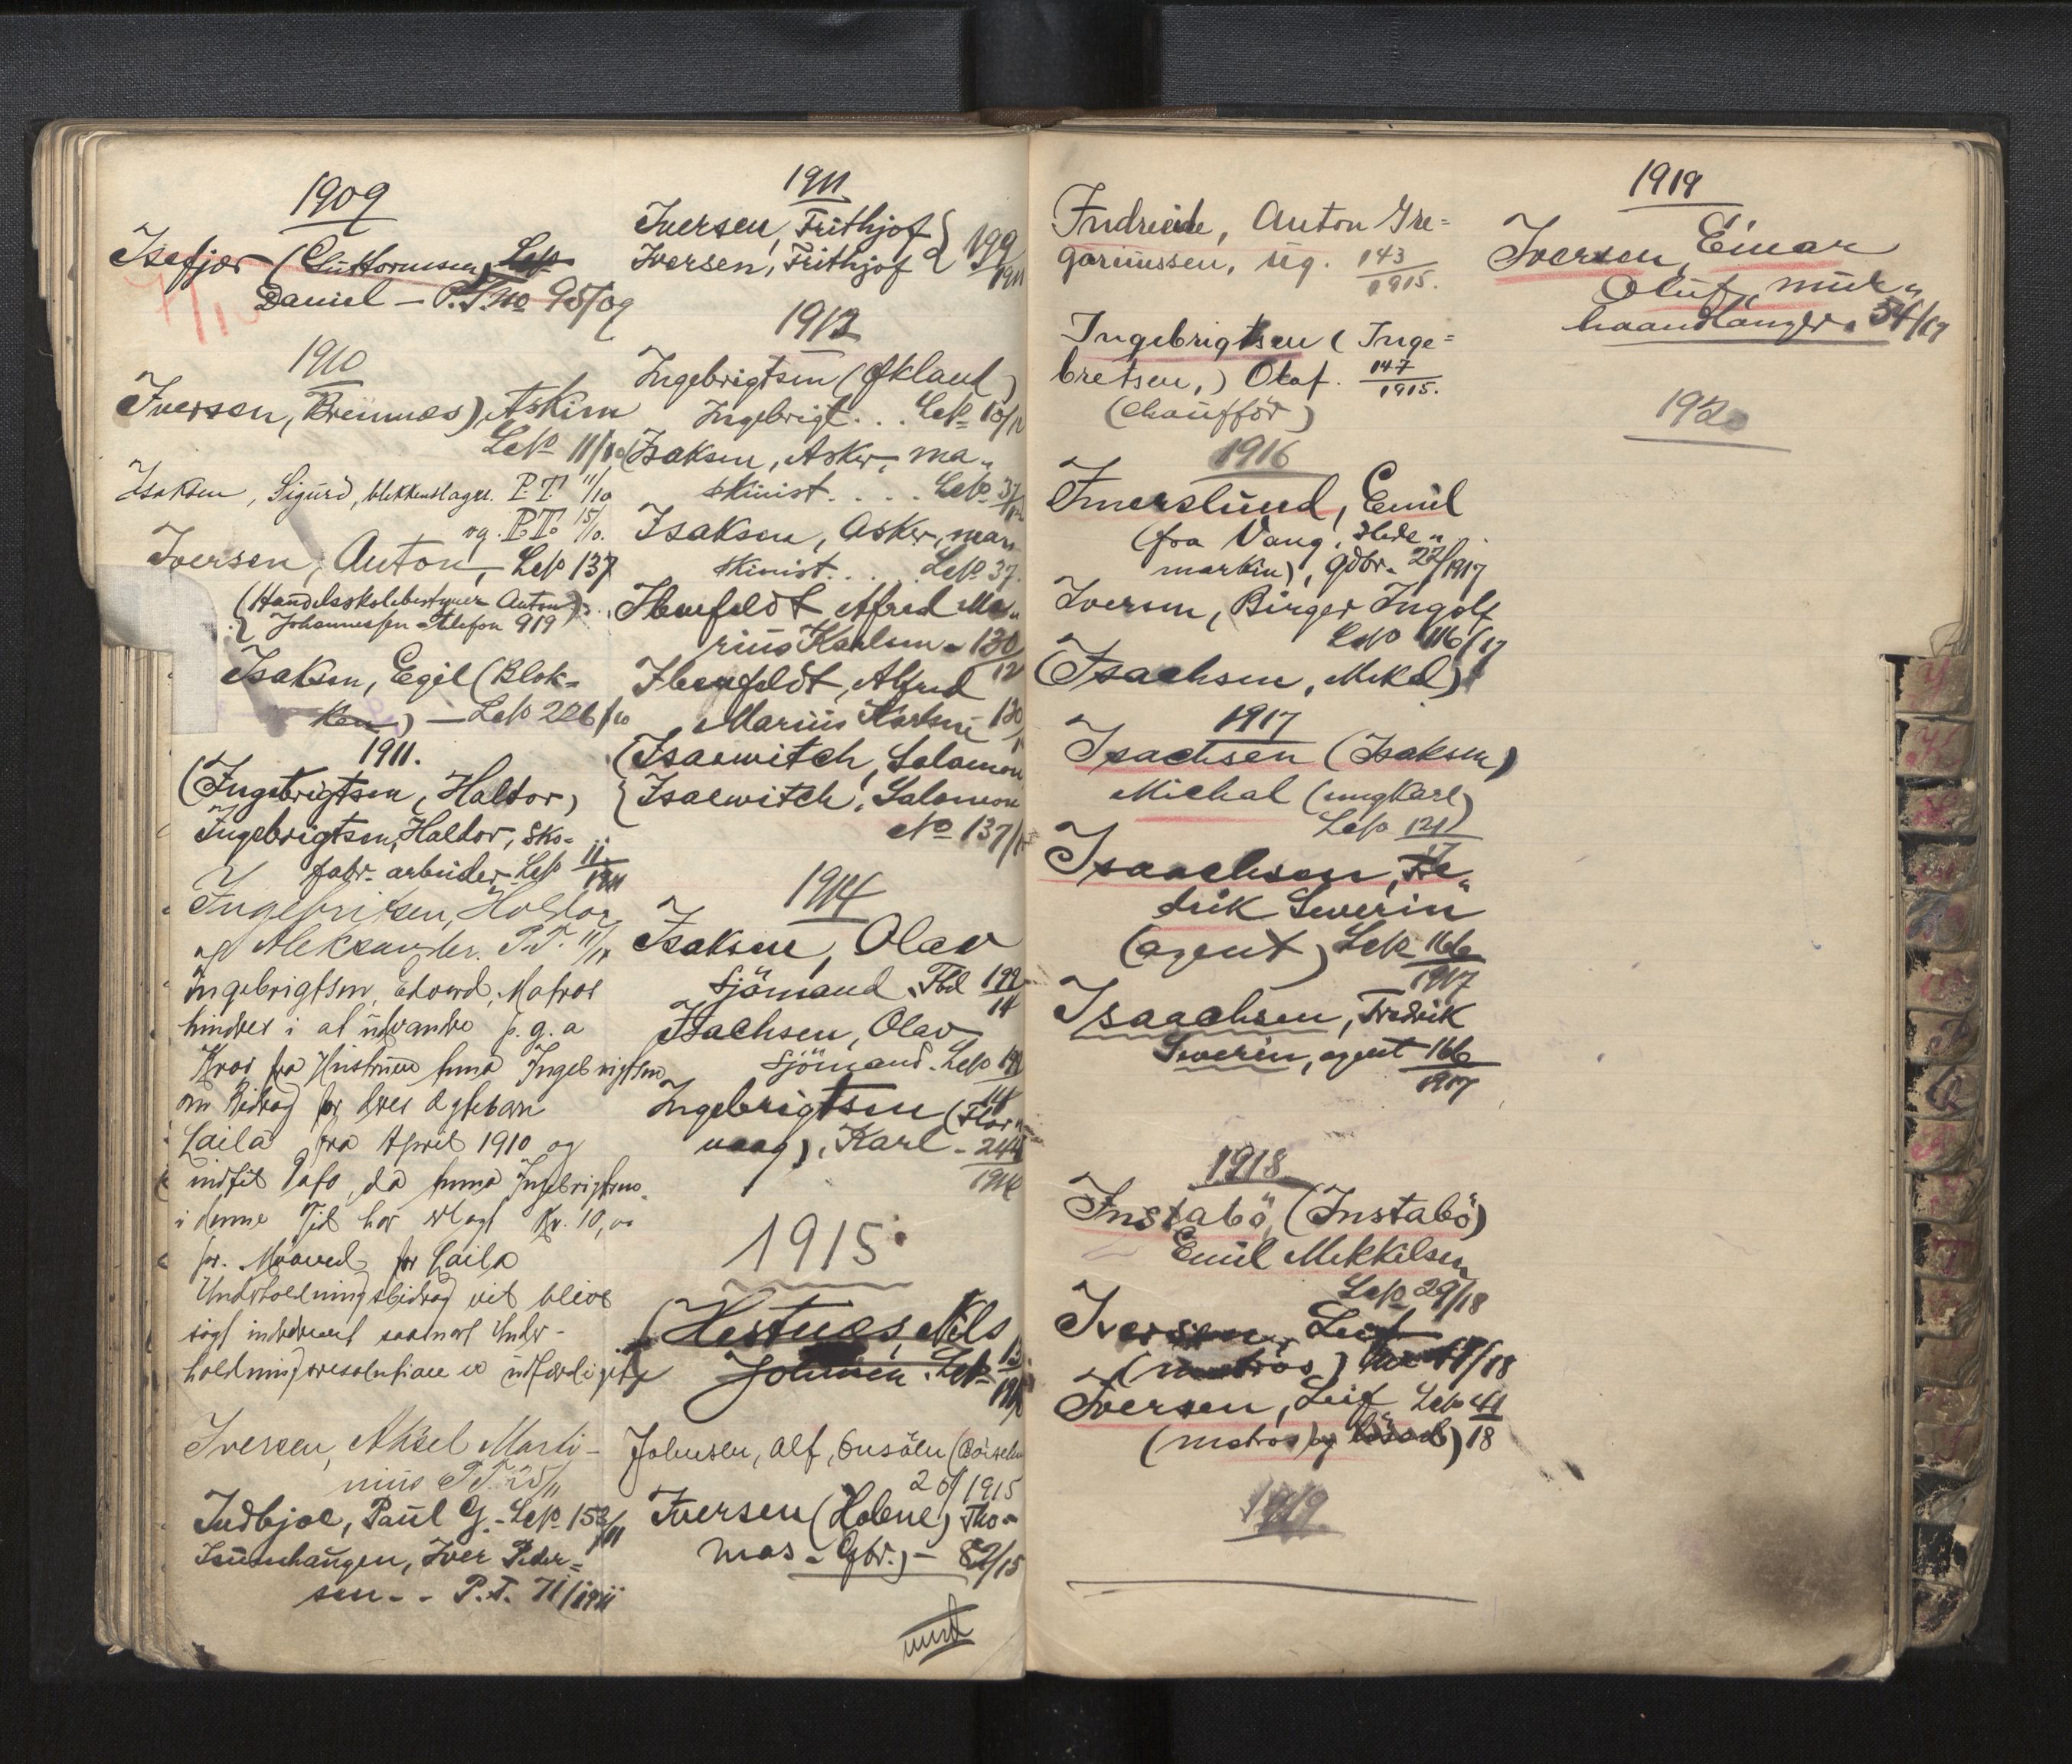 1909
Isefjær (Guttormsen) Lep
Daniel – P.T. no 95/09
1910
Iversen, Bremnes) Askim
Lep 11/10
Isaksen, Sigurd, blikkenslager. P.T. 11/10
og. P.T. 15/10.
Iversen, Anton, Lep 137
(Handelsskolebestyrer Anton
Johannessen – telefon 919)
Isaksen, Egil (Blok-
ken) – Lep 226/10
1911.
(Ingebrigtsen, Haldor)
Ingebrigtsen, Haldor, sko-
fabr. arbeider Lep 11/1911
Ingebriksen, Holdor
Aleksander. P.T. 11/11
Ingebrigtsen, Edvard, Matros
hindres i at udvandre p. g. a
Krav fra Hustruen Anna Ingebrigtsen
om Bidrag for deres Ægtebarn
Laila fra April 1910 og
indtil Dato, da Anna Ingebrigtsen
i denne Tid har erlagt Kr. 10,00
pr. Maaned for Laila
Underholdningsbidrag vil blive
søgt inddrevet saasnart Under-
holdningsresolutionen er udfærdiget
Iversen, Aksel Marti-
nius P.T. 25/11
Indbjoe, Paul G. – Lep. 153/11
Isumhaugen, Iver Peder-
sen – – P.T. 71/1911
1911
Iversen, Frithjof
Iversen, Frithjof 199/1911
1912
Ingebrigtsen (Økland)
Ingebrigt . . . Lep 10/12
(Isaksen, Asker, ma-
skinist . . . . Lep. 37/12
Isaksen, Asker, ma-
skinist . . . . Lep 37.
Ibenfeldt Alfred Ma-
rius Karlsen – 130/12
Ibenfeldt, Alfred
Marius Karlsen – 130
(Isaewitch, Salomon
Isaewitch, Salomon
No 137/12
1914
Isaksen, Olav
sjömand, Fbd 199/14
Isachsen, Olav
sjömand. Lep 199/14
Ingebrigtsen (Flor-
vaag), Karl – 244/1914
1915
(Hestnes, Nils
Johnsen. Lep 13/1915
Johnsen, Alf, Onsöen
20/1915
Iversen (Holene) Tho-
mas – Gbr.) – 82/15
vend
Indreeide, Anton Gre=
goriussen, ug. 143/1915.
Ingebrigtsen (Inge=
bretsen,) Olaf. 147/1915.
(Chaufför)
1916
Imerslund, Emil
(fra Vang, Hede-
marken), gdbr. 22/1917
Iversen, Birger Ingolf
Lep 116/17
(Isachsen, Mikal)
1917
Isachsen (Isaksen)
Michal (ungkarl)
Lep 121/17
Isaachsen, Fre-
drik Severin
(agent) Lep 166/1917
Isaachsen, Fredrik
Severin, agent 166/1917
1918
Instabö (Instabö)
Emil Mikkelsen
Lep 29/18
Iversen, Leif
(matros) 41/18
Iversen, Leif Lep 41/18
(matros og
1919
1919
Iversen, Einar
Oluf, mur-
haandlanger. 54/19
1920